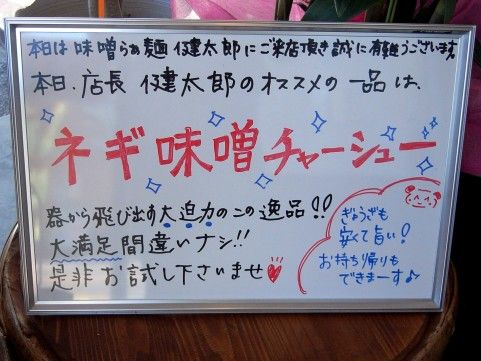 本日は味噌らぁ麺 健太郎にご来店頂き誠に有難うございます。
本日、店長 健太郎のオススメの一品は、
ネギ味噌チャーシュー
器から飛び出す大迫力のこの逸品!!
大満足間違いナシ!!
是非お試し下さいませ♥
ぎょうざも
安くて旨い!
お持ち帰りも
できまーす♪